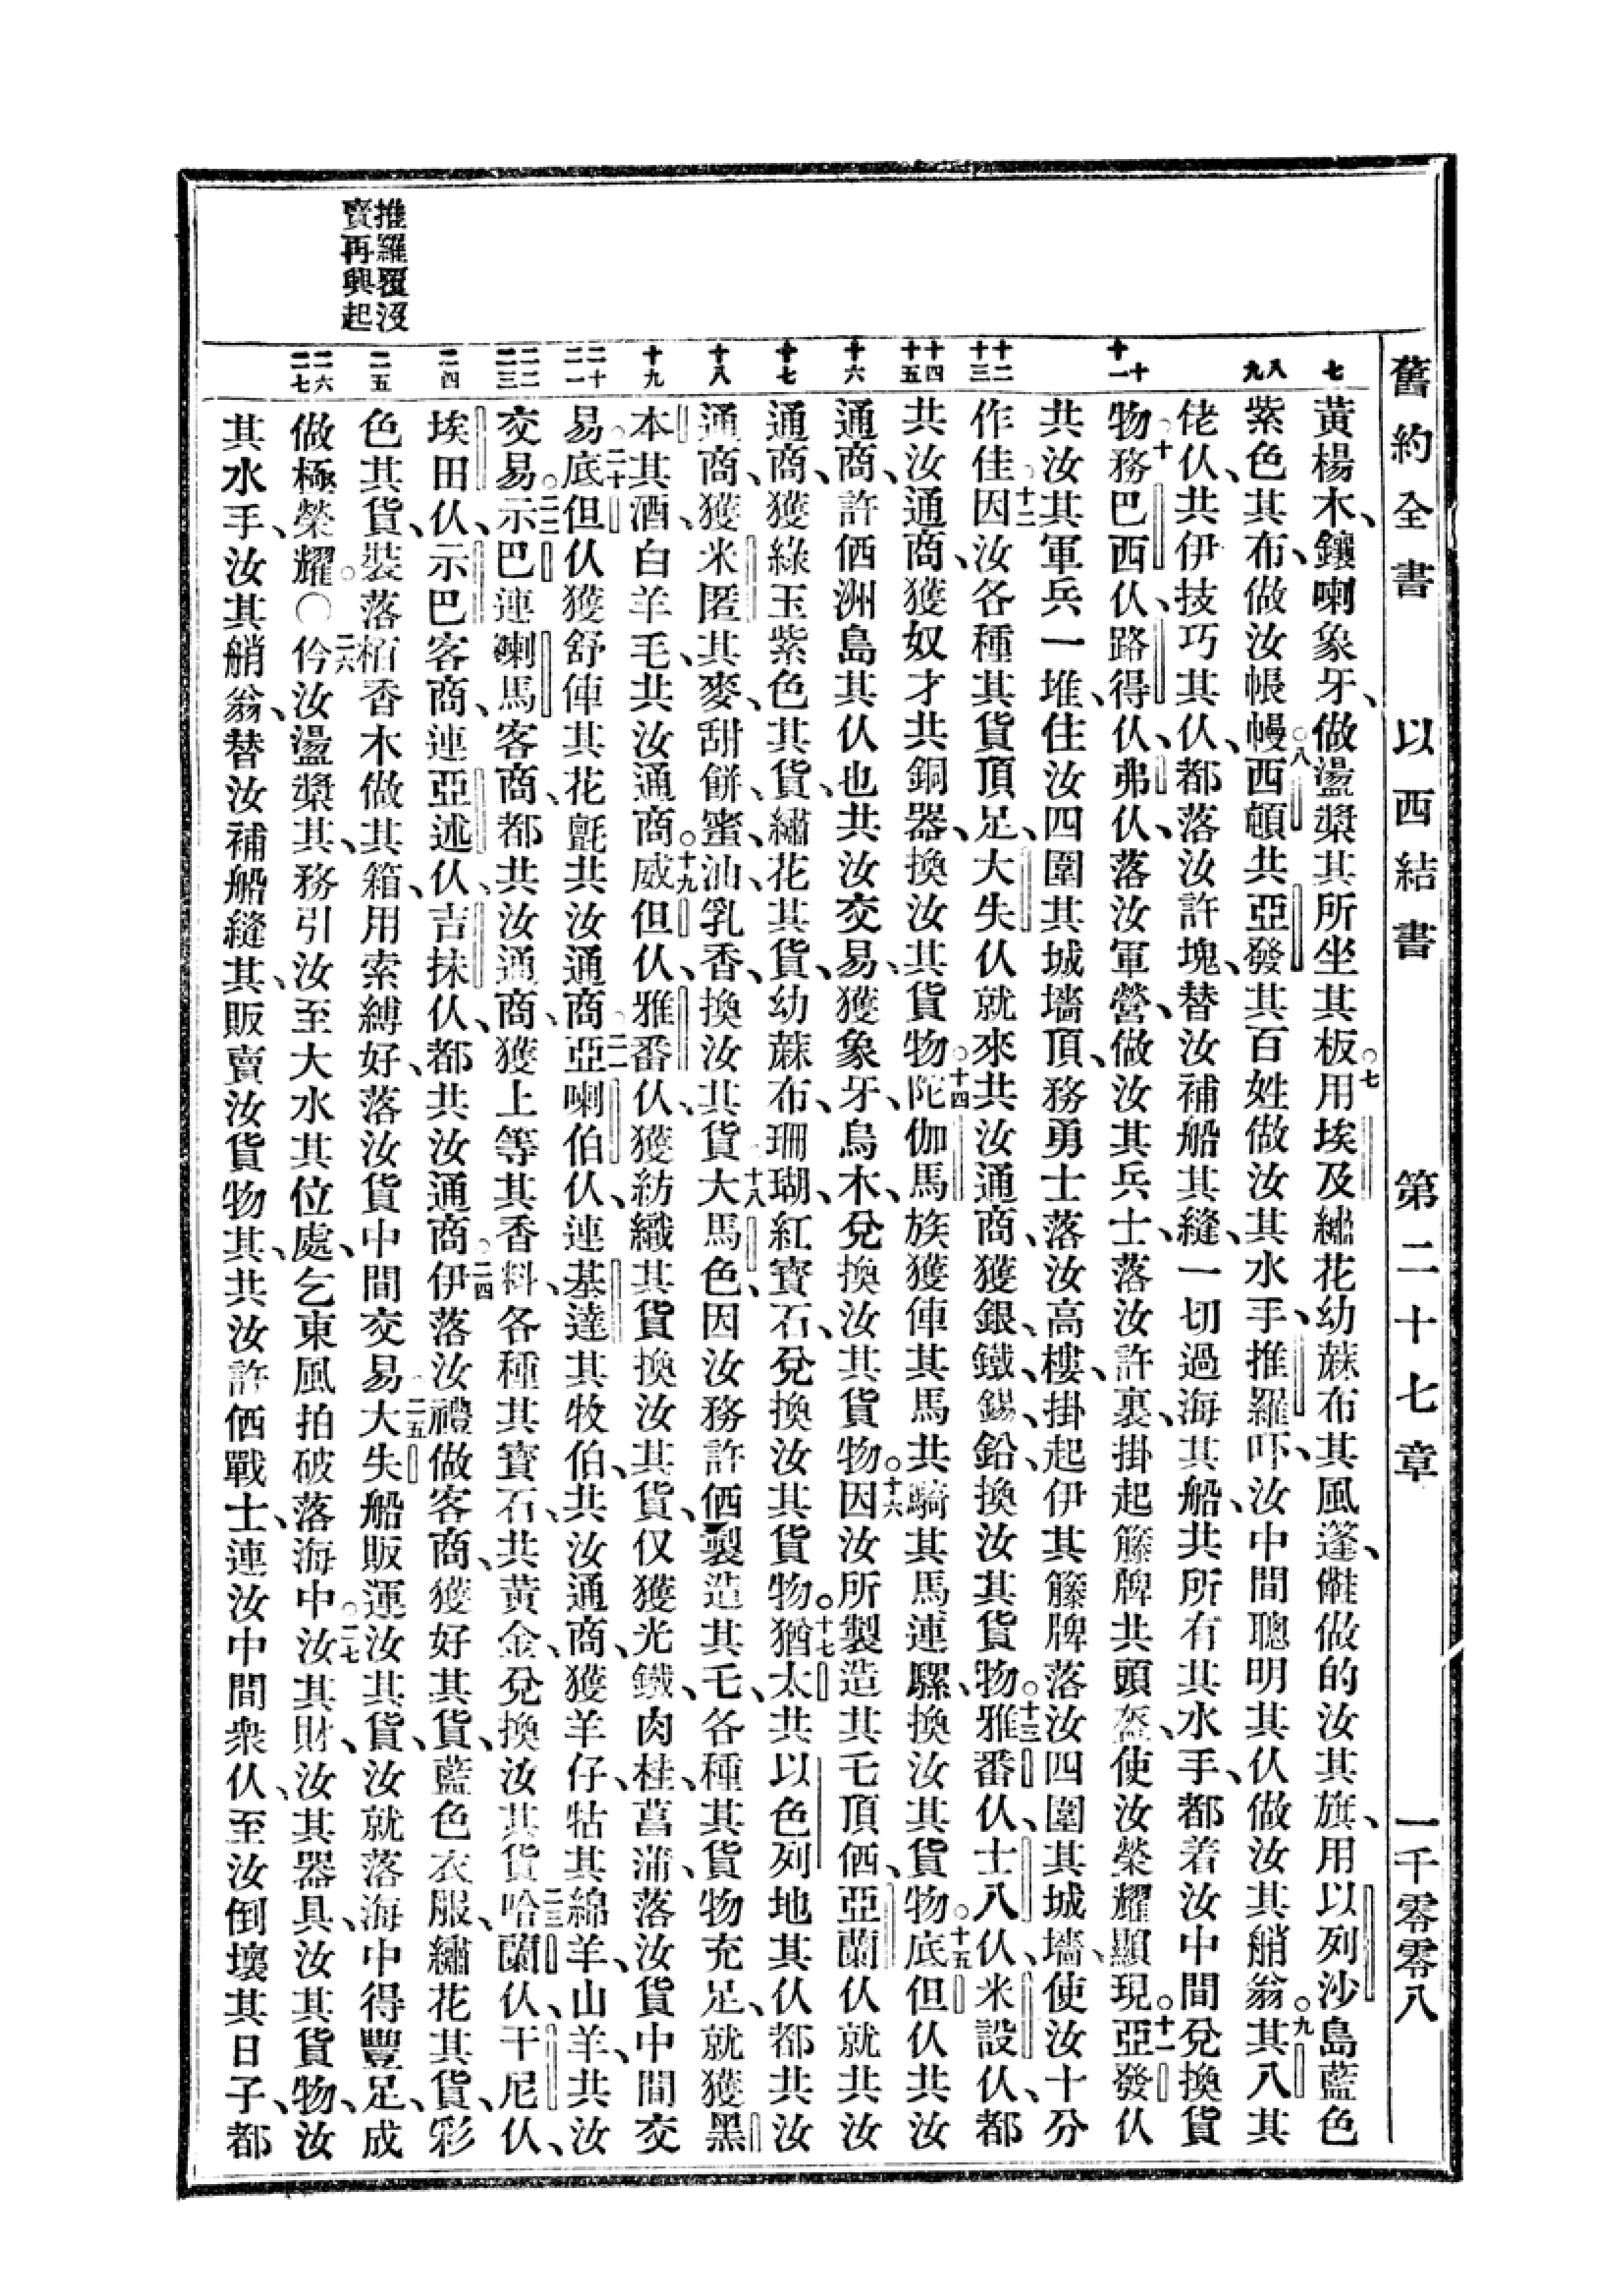 舊約全書 以西結書 第二十七章 一千零零八
推羅覆沒
賣再興起
七
八 九
十 十一
十二 十三
十四 十五
十六
十七
十八
十九
二十 二一
二二 二三
二四
二五
二六 二七
黃楊木、鑲喇象牙、做盪槳其所坐其板。七用埃及繡花幼蔴布其風篷、做的汝其旗、用以列沙島藍色
紫色其布、做汝帳幔。八西頓共亞發其百姓做汝其水手、推羅吓、汝中間聰明其仈做汝其艄翁。九其八其
佬仈、共伊技巧其仈、都落汝許塊、替汝補船其縫、一切過海其船、共所有其水手、都着汝中間兌換貨
物。十務巴西仈、路得仈、弗仈、落汝軍營、做汝其兵士、落汝許裏、掛起籐牌共頭盔、使汝榮耀顯現。十一亞發仈
共汝其軍兵一堆、住汝四圍其城墻頂、務勇士落汝高樓、掛起伊其籐牌落汝四圍其城墻、使汝十分
作佳。十二因汝各種其貨頂足、大失仈就來共汝通商、獲銀、鐵、錫、鉛、換汝其貨物。十三雅番仈、士八仈、米設仈、都
共汝通商、獲奴才共銅器、換汝其貨物。十四陀伽馬族獲俥其馬共騎其馬連騾、換汝其貨物。十五底但仈共汝
通商、許価洲島其仈也共汝交易、獲象牙、烏木、兌換汝其貨物。十六因汝所製造其乇頂価、亞蘭仈就共汝
通商、獲綠玉紫色其貨、繡花其貨、幼蔴布、珊瑚、紅寶石、兌換汝其貨物。十七猶太共以色列地其仈都共汝
通商、獲米匿其麥、甜餅、蜜、油、乳香、換汝其貨。十八大馬色、因汝務許価製造其乇、各種其貨物充足、就獲黑
本其酒、白羊毛、共汝通商。十九威但仈、雅番仈、獲紡織其貨換汝其貨、仅獲光鐵、肉桂、菖蒲、落汝貨中間交
易。二十底但仈獲舒俥其花氈共汝通商。二一亞喇伯仈、連基達其牧伯、共汝通商、獲羊仔、牯其綿羊、山羊、共汝
交易。二二示巴連喇馬客商、都共汝通商、獲上等其香料、各種其寶石、共黃金、兌換汝其貨。二三哈蘭仈、干尼仈、
埃田仈、示巴客商、連亞述仈、吉抹仈、都共汝通商。二四伊落汝禮做客商、獲好其貨、藍色衣服、繡花其貨、彩
色其貨、裝落栢香木做其箱、用索縛好、落汝貨中間交易。二五大失船販運汝其貨、汝就落海中得豐足、成
做極榮耀。〇二六仱汝盪槳其、務引汝至大水其位處、乞東風拍破落海中。二七汝其財、汝其器具、汝其貨物、汝
其水手、汝其艄翁、替汝補船縫其、販賣汝貨物其、共汝許価戰士、連汝中間衆仈、至汝倒壞其日子、都